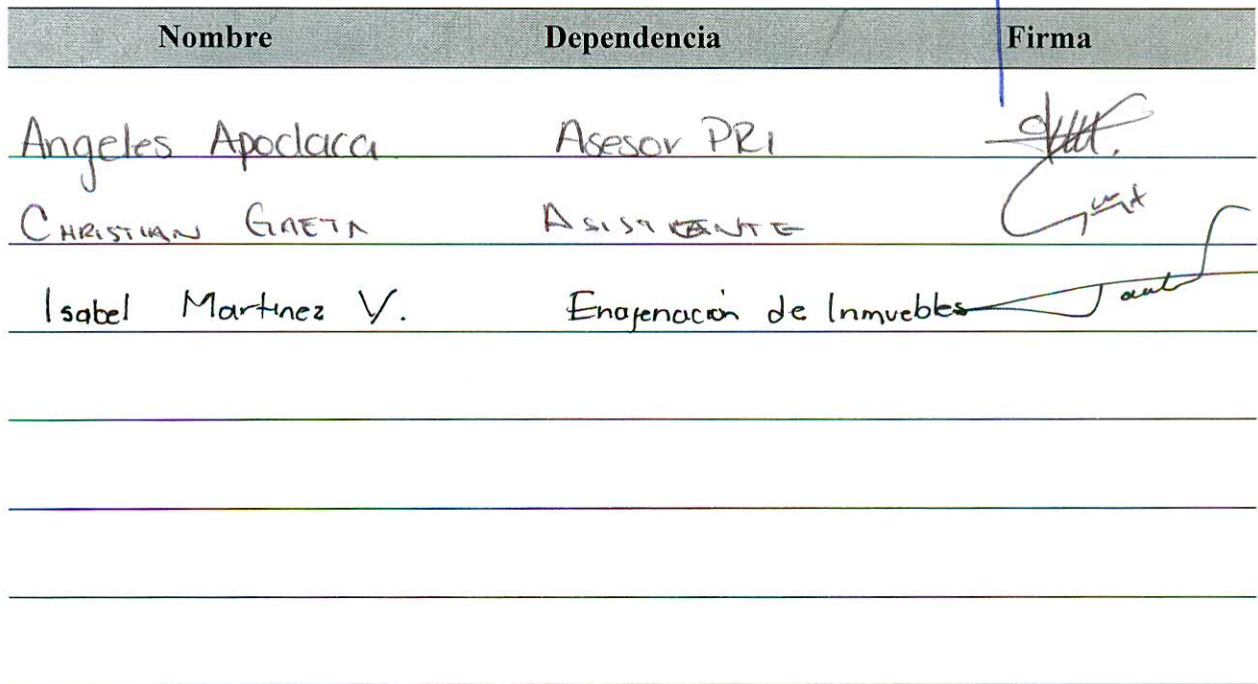 Nombre Dependencia Firma
Angeles Apodaca Asesor PRI
CHRISTIAN GAETA ASISTENTE
Isabel Martinez V. Enajenación de Inmuebles